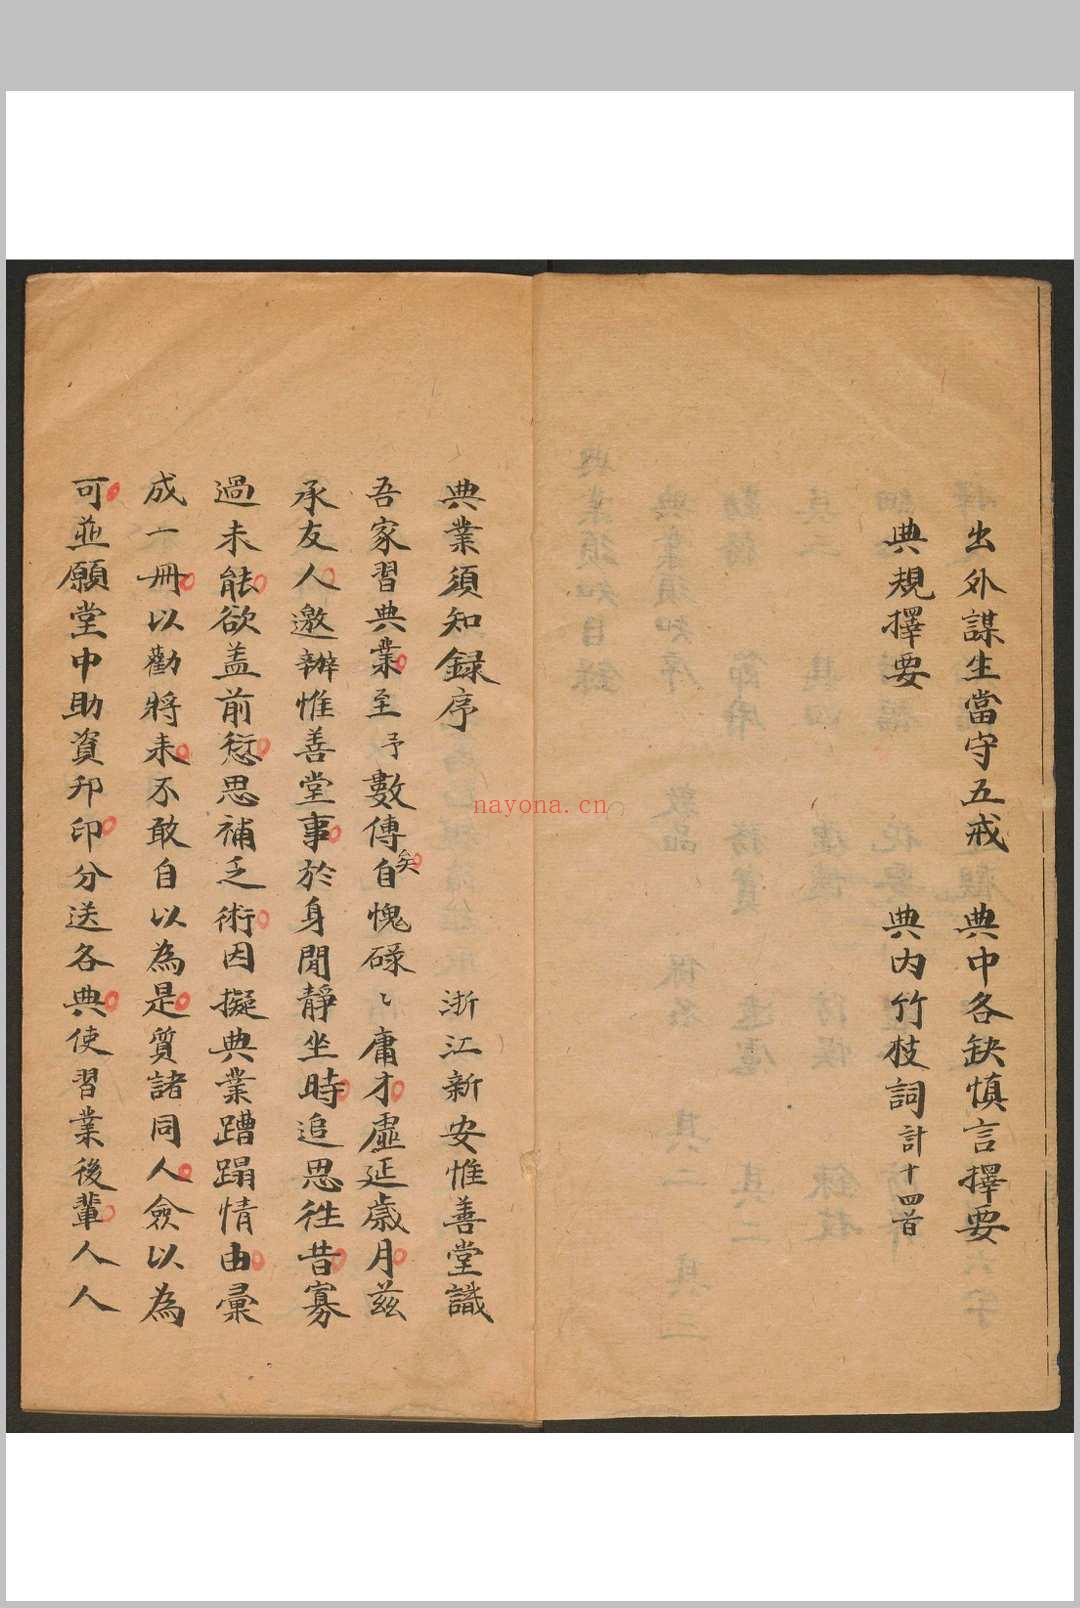 出外謀生當守五戒　典中各缺慎言擇要
典規擇要　典内竹枝詞計十四首
典業須知錄序　浙江新安惟善堂識
吾家習典業至予數傳矣自愧碌〻庸才虛延歲月茲
承友人邀辦惟善堂事於身閒靜坐時追思往昔寡
過未能欲盖前愆思補乏術因擬典業蹧蹋情由彙
成一冊以勸將来不敢自以為是質諸同人僉以為
可並願堂中助資刋印分送各典使習業後輩人人
nayona.cn